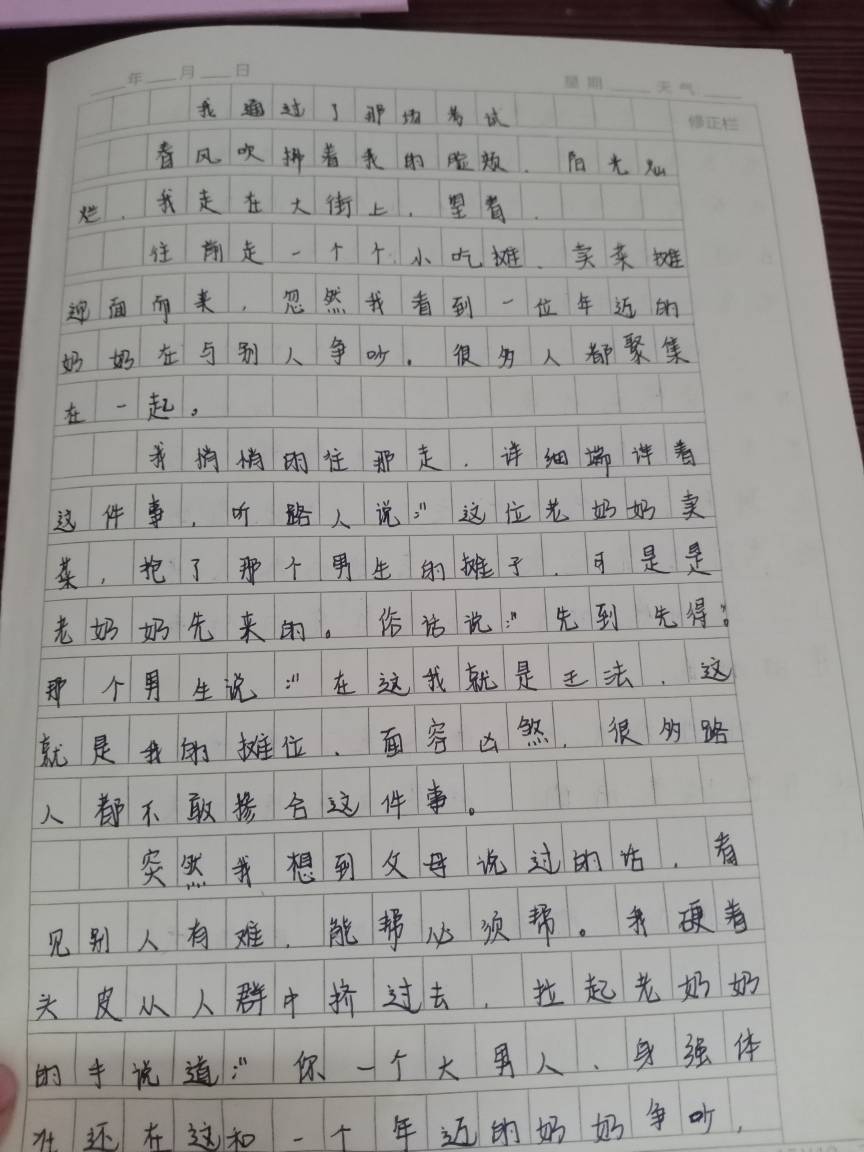 年 月 日 星期 天气
修正栏
我通过了那场考试
春风吹拂着我的脸颊，阳光灿
烂，我走在大街上，望着，
往前走一个个小吃摊、卖菜摊
迎面而来，忽然我看到一位年近的
奶奶在与别人争吵。很多人都聚集
在一起。
我悄悄的往那走，详细端详着
这件事，听路人说：“这位老奶奶卖
菜，抢了那个男生的摊子，可是是
老奶奶先来的。俗话说：“先到先得”。
那个男生说：“在这我就是王法，这
就是我的摊位、面容凶煞，很多路
人都不敢掺合这件事。
突然我想到父母说过的话，看
见别人有难，能帮必须帮。我硬着
头皮从人群中挤过去，拉起老奶奶
的手说道：“你一个大男人、身强体
壮还在这和一个年近的奶奶争吵，